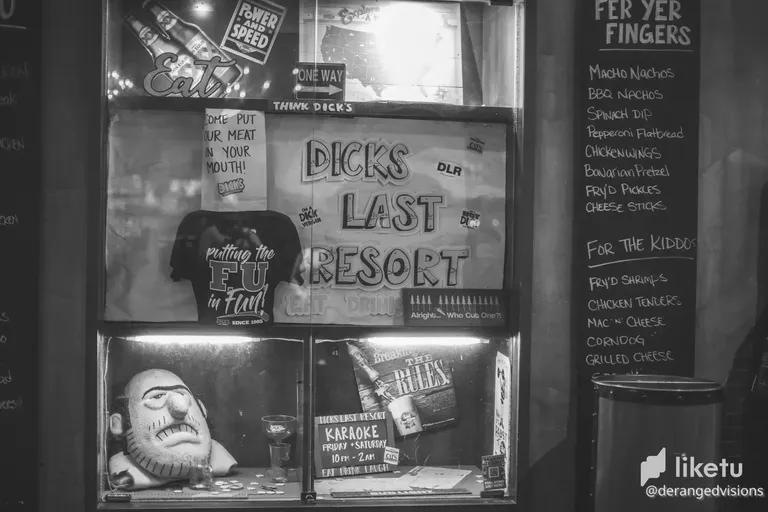 POWER
AND
SPEED
Eat
ONE WAY
THINK DICK'S
COME PUT
OUR MEAT
IN YOUR
MOUTH!
DICK'S
DICKS
LAST
RESORT
DLR
EAT DRINK
putting the
FU
in Fun!
SINCE 1985
Alright... Who Cut One?!
THE
RULES
DICKS LAST RESORT
KARAOKE
FRIDAY + SATURDAY
10PM - 2AM
EAT DRINK LAUGH
FER YER
FINGERS
MACHO NACHOS
BBQ NACHOS
SPINACH DIP
Pepperoni Flatbread
CHICKEN WINGS
Bavarian Pretzel
FRY'D PICKLES
CHEESE STICKS
FOR THE KIDDOS
FRY'D SHRIMPS
CHICKEN TENDERS
MAC 'N' CHEESE
CORNDOG
GRILLED CHEESE
liketu
@derangedvisions